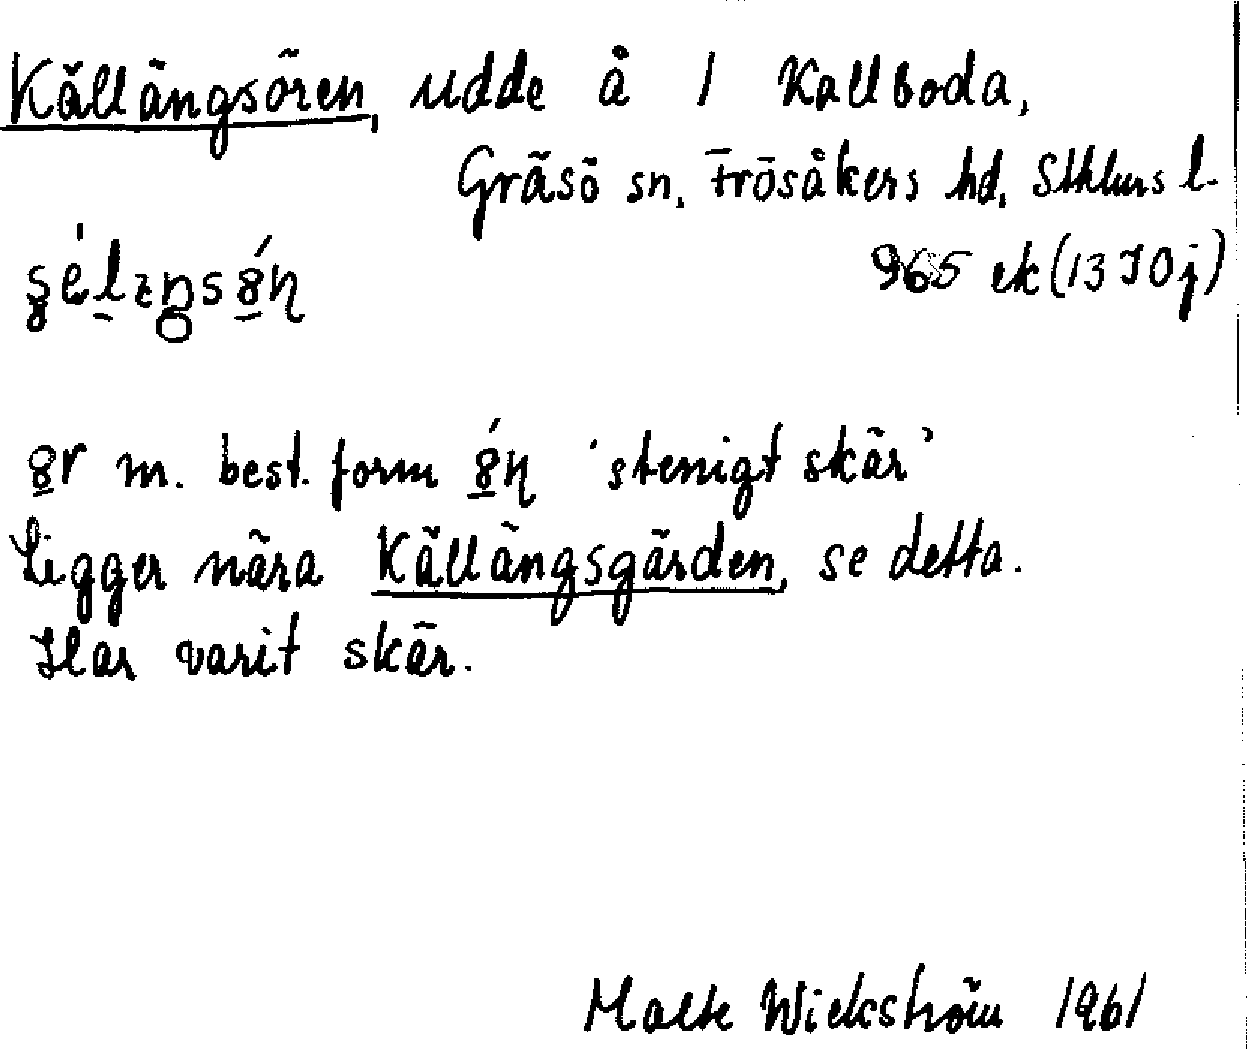 Källängsören, udde å 1 Kallboda,
Gräsö sn, Frösåkers hd, Sthlms l.
965 ek (13 I 0 j)
ör m. best. form 'stenigt skär'
Ligger nära Källängsgärden, se detta.
Har varit skär.
Malte Wickström 1961